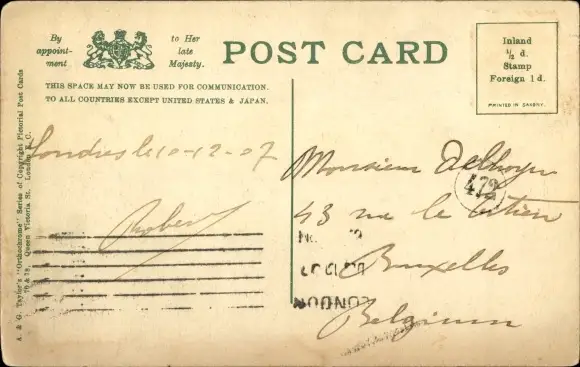 By
appoint-
ment
to Her
late
Majesty.
POST CARD
Inland
½ d.
Stamp
Foreign 1 d.
PRINTED IN SAXONY.
THIS SPACE MAY NOW BE USED FOR COMMUNICATION.
TO ALL COUNTRIES EXCEPT UNITED STATES & JAPAN.
A. & G. Taylor's "Orthochrome" Series of Copyright Pictorial Post Cards
Queen Victoria St. London E. C.
Londres le 10-12-07
Robert
Monsieur
472
43 rue le
Bruxelles
Belgium
LONDON